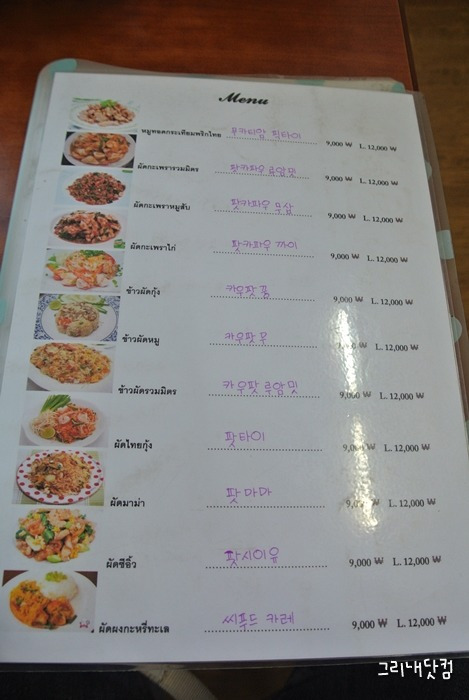 Menu
หมูทอดกระเทียมพริกไทย 무카티얌 픽타이 9,000 ₩ L. 12,000 ₩
ผัดกะเพรารวมมิตร 팟카파우 루암밋 9,000 ₩ L. 12,000 ₩
ผัดกะเพราหมูสับ 팟카파우 무삽 9,000 ₩ L. 12,000 ₩
ผัดกะเพราไก่ 팟카파우 까이 9,000 ₩ L. 12,000 ₩
ข้าวผัดกุ้ง 카우팟 꿍 9,000 ₩ L. 12,000 ₩
ข้าวผัดหมู 카우팟 무 9,000 ₩ L. 12,000 ₩
ข้าวผัดรวมมิตร 카우팟 루암밋 9,000 ₩ L. 12,000 ₩
ผัดไทยกุ้ง 팟타이 9,000 ₩ L. 12,000 ₩
ผัดมาม่า 팟마마 9,000 ₩ L. 12,000 ₩
ผัดซีอิ๊ว 팟시이유 9,000 ₩ L. 12,000 ₩
ผัดผงกะหรี่ทะเล 씨푸드 카레 9,000 ₩ L. 12,000 ₩
그리내닷컴